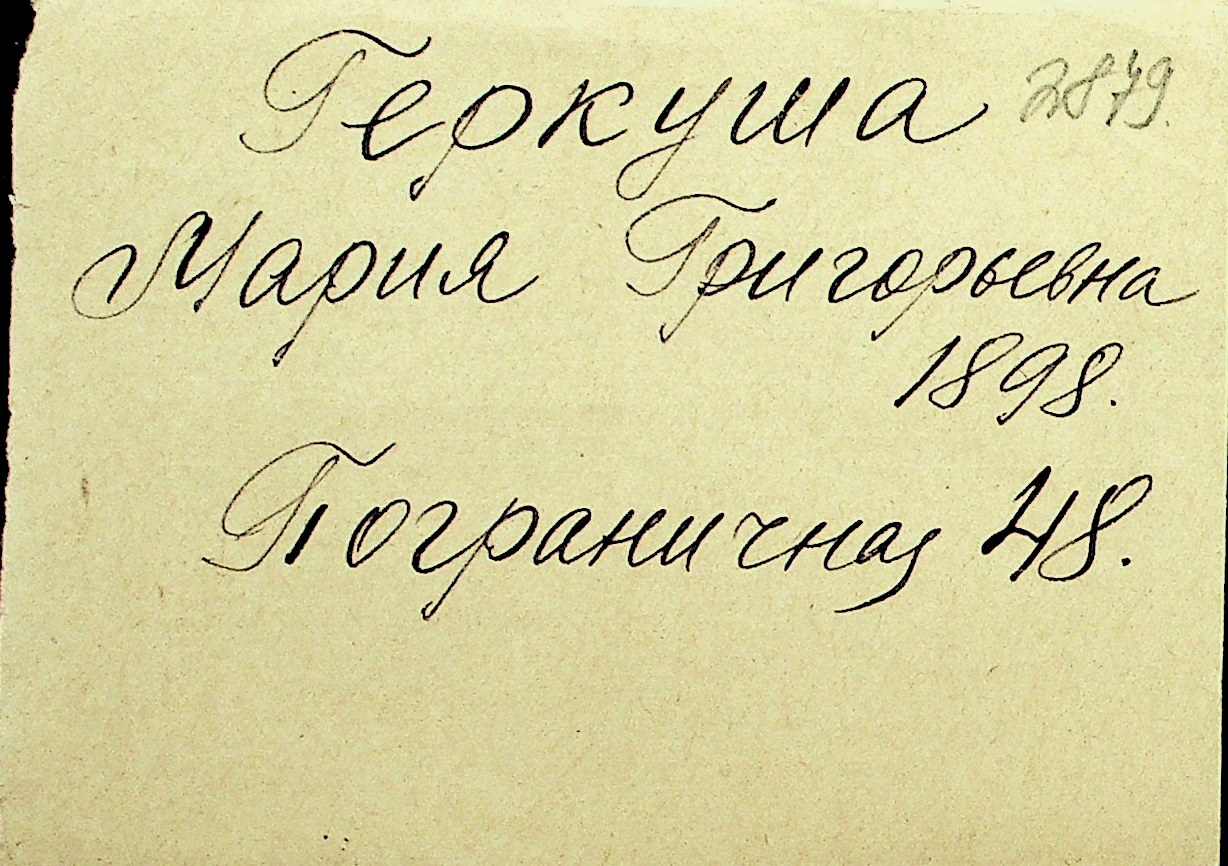 Геркуша 2879.
Мария Григорьевна
1898.
Пограничная 48.